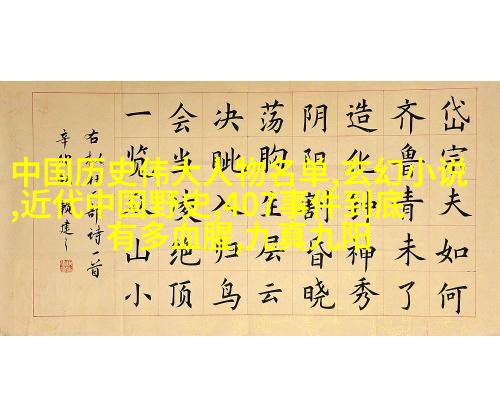 中国历史伟大人物名单,玄幻小说
,近代中国野史,407事件到底
有多血腥,九真九阳
岱宗夫如何
齐鲁青未了
造化钟神秀
阴阳割昏晓
荡胸生层云
决眦入归鸟
会当凌绝顶
一览众山小
诗一首